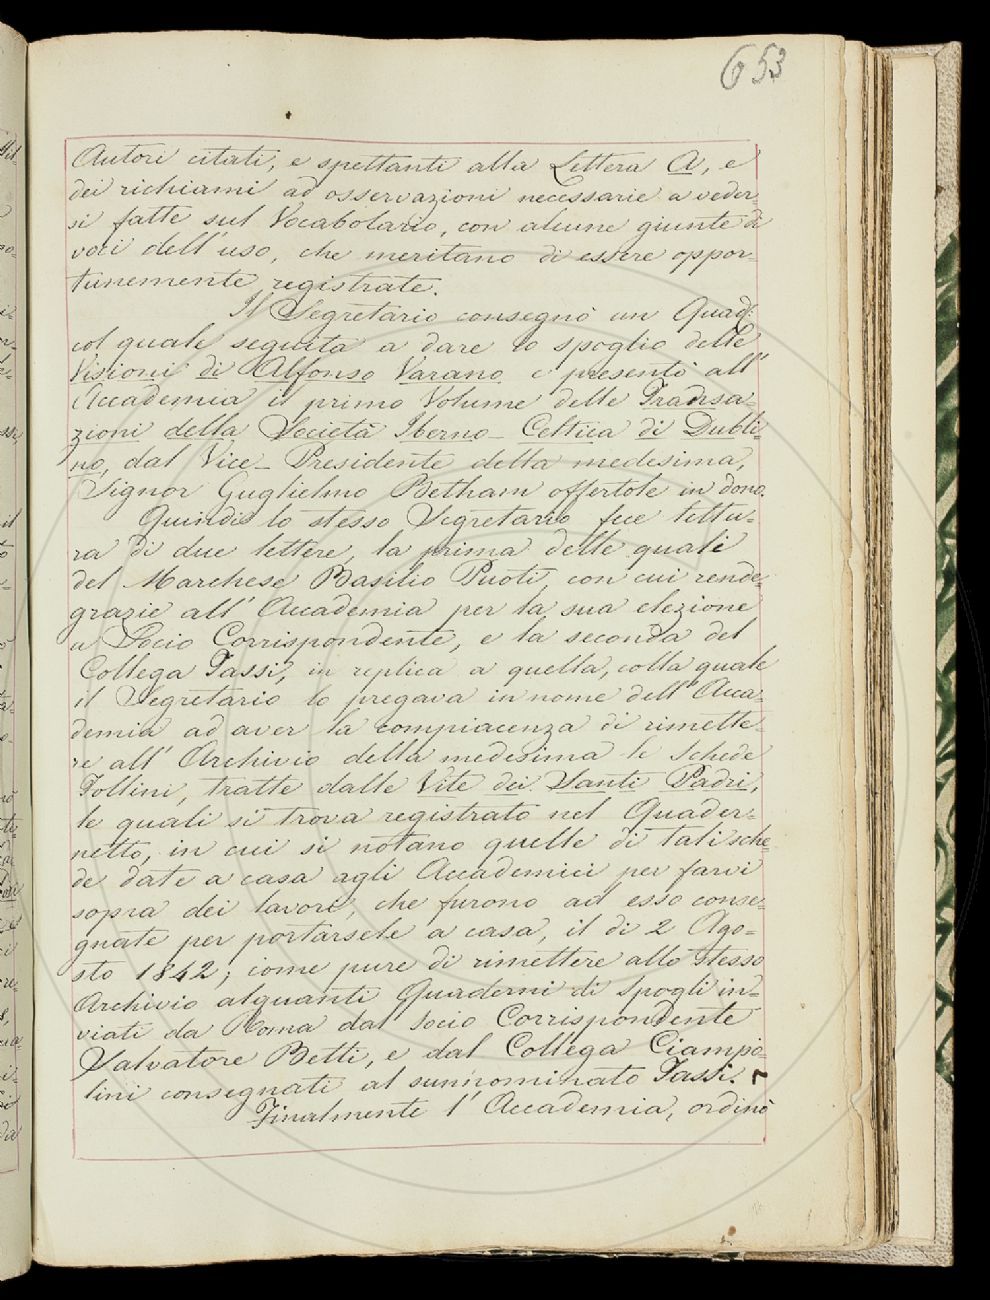 653
Autori citati, e spettanti alla Lettera A, e
dei richiami ad osservazioni necessarie a veder-
si fatte sul Vocabolario, con alcune giunte di
voci dell'uso, che meritano di essere oppor-
tunemente registrate.
Il Segretario consegnò un Quad:
col quale seguita a dare lo spoglio delle
Visioni di Alfonso Varano e presentò all'
Accademia il primo Volume delle Transa-
zioni della Società Iberno-Celtica di Dubli-
no, dal Vice-Presidente della medesima,
Signor Guglielmo Betham offertole in dono.
Quindi lo stesso Segretario fece lettu-
ra di due lettere, la prima delle quali
del Marchese Basilio Puoti, con cui rende
grazie all'Accademia per la sua elezione
a Socio Corrispondente, e la seconda del
Collega Tassi, in replica a quella, colla quale
il Segretario lo pregava in nome dell'Acca-
demia ad aver la compiacenza di rimette-
re all'Archivio della medesima le Schede
Follini, tratte dalle Vite dei Santi Padri,
le quali si trova registrato nel Quader-
netto, in cui si notano quelle di tali sche-
de date a casa agli Accademici per farvi
sopra dei lavori, che furono ad esso conse-
gnate per portarsele a casa, il dì 2 Ago-
sto 1842; come pure di rimettere allo stesso
Archivio alquanti Quaderni di Spogli in-
viati da Roma dal Socio Corrispondente
Salvatore Betti, e dal Collega Ciampo-
lini consegnati al sunnominato Tassi.
Finalmente l'Accademia, ordinò